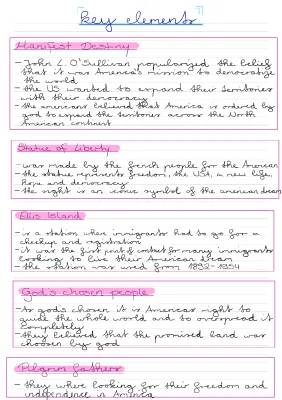 key elements
Manifest Destiny
- John L. O'Sullivan popularized the belief
that it was America's mission to democratize
the world
- the US wanted to expand their territories
with their democracy
- the americans believed that America is ordered by
god to expand the territories across the North
American continent
Statue of Liberty
- was made by the french people for the American
- the statue represents freedom, the USA, a new life,
hope and democracy
- the night is an iconic symbol of the american dream
Ellis Island
- is a station where immigrants had to go for a
checkup and registration
- it was the first point of contact for many immigrants
looking to live their American dream
- the station was used from 1892-1954
God's chosen people
- As god's chosen it is Americas right to
guide the whole world and to overspread it
completely
- they believed that the promised land was
choosen by god
Pilgrim fathers
- they where looking for their freedom and
independence in America